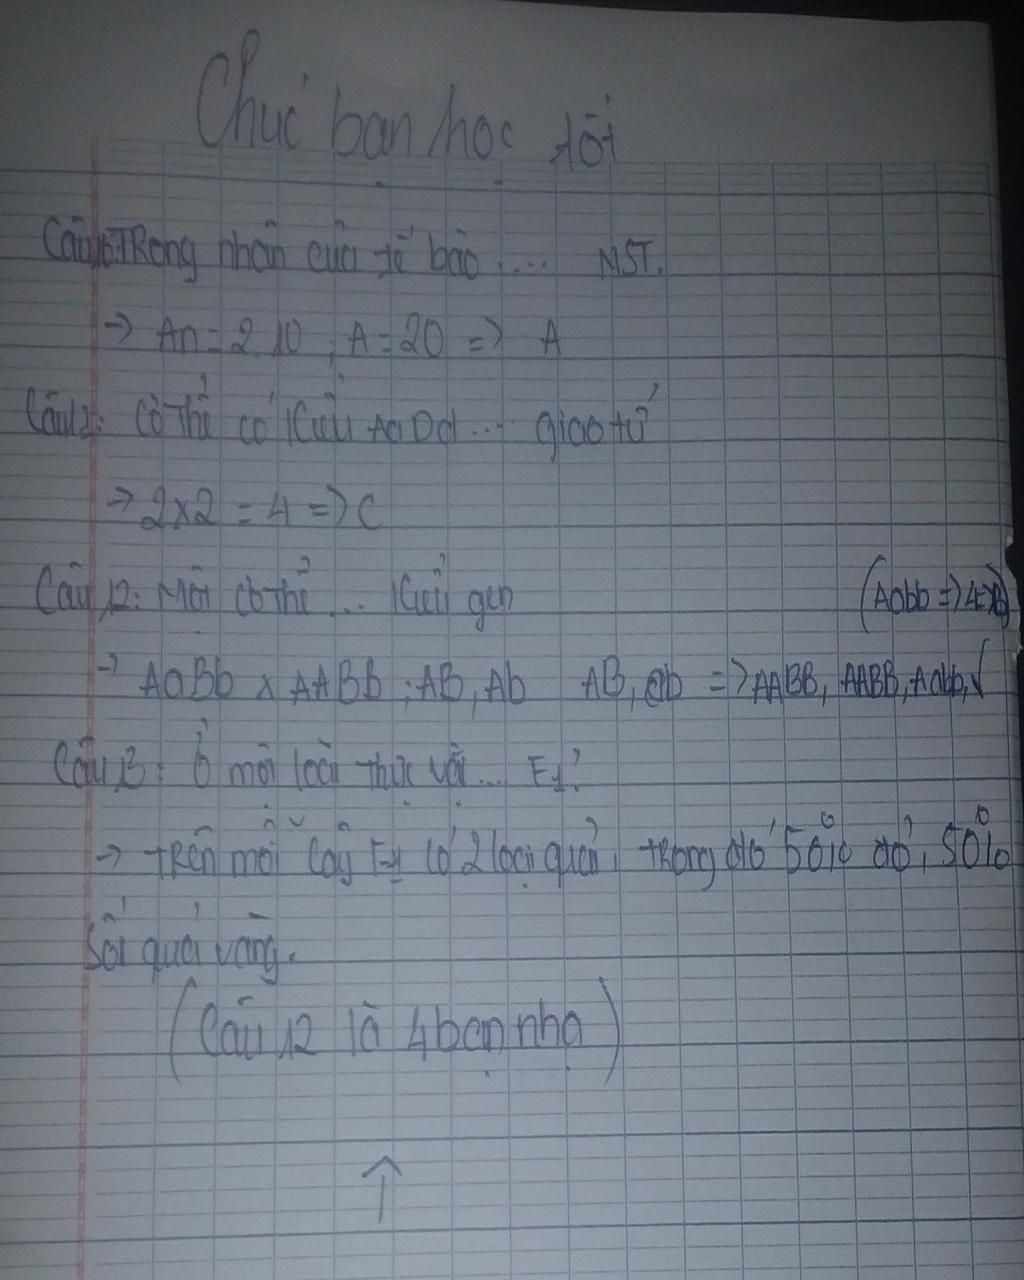 Chúc bạn học tốt
Câu 6: TRong nhân của tế bào .... NST.
→ An = 2.10, A = 20 => A
Câu 12: Cơ thể có Kiểu AaDd ... giao tử
→ 2x2 = 4 => C
Câu 12: Một cơ thể ... Kiểu gen (Aabb => 4
→ AaBb x AABb : AB, Ab AB, ab => AABB, AABB, Aabb,
Câu 13: Ở một loài thực vật ... F1?
→ TRên mỗi cây F1 có 2 loại quả, trong đó 50% đỏ, 50%
số quả vàng.
(Câu 12 là 4 bạn nha)
↑